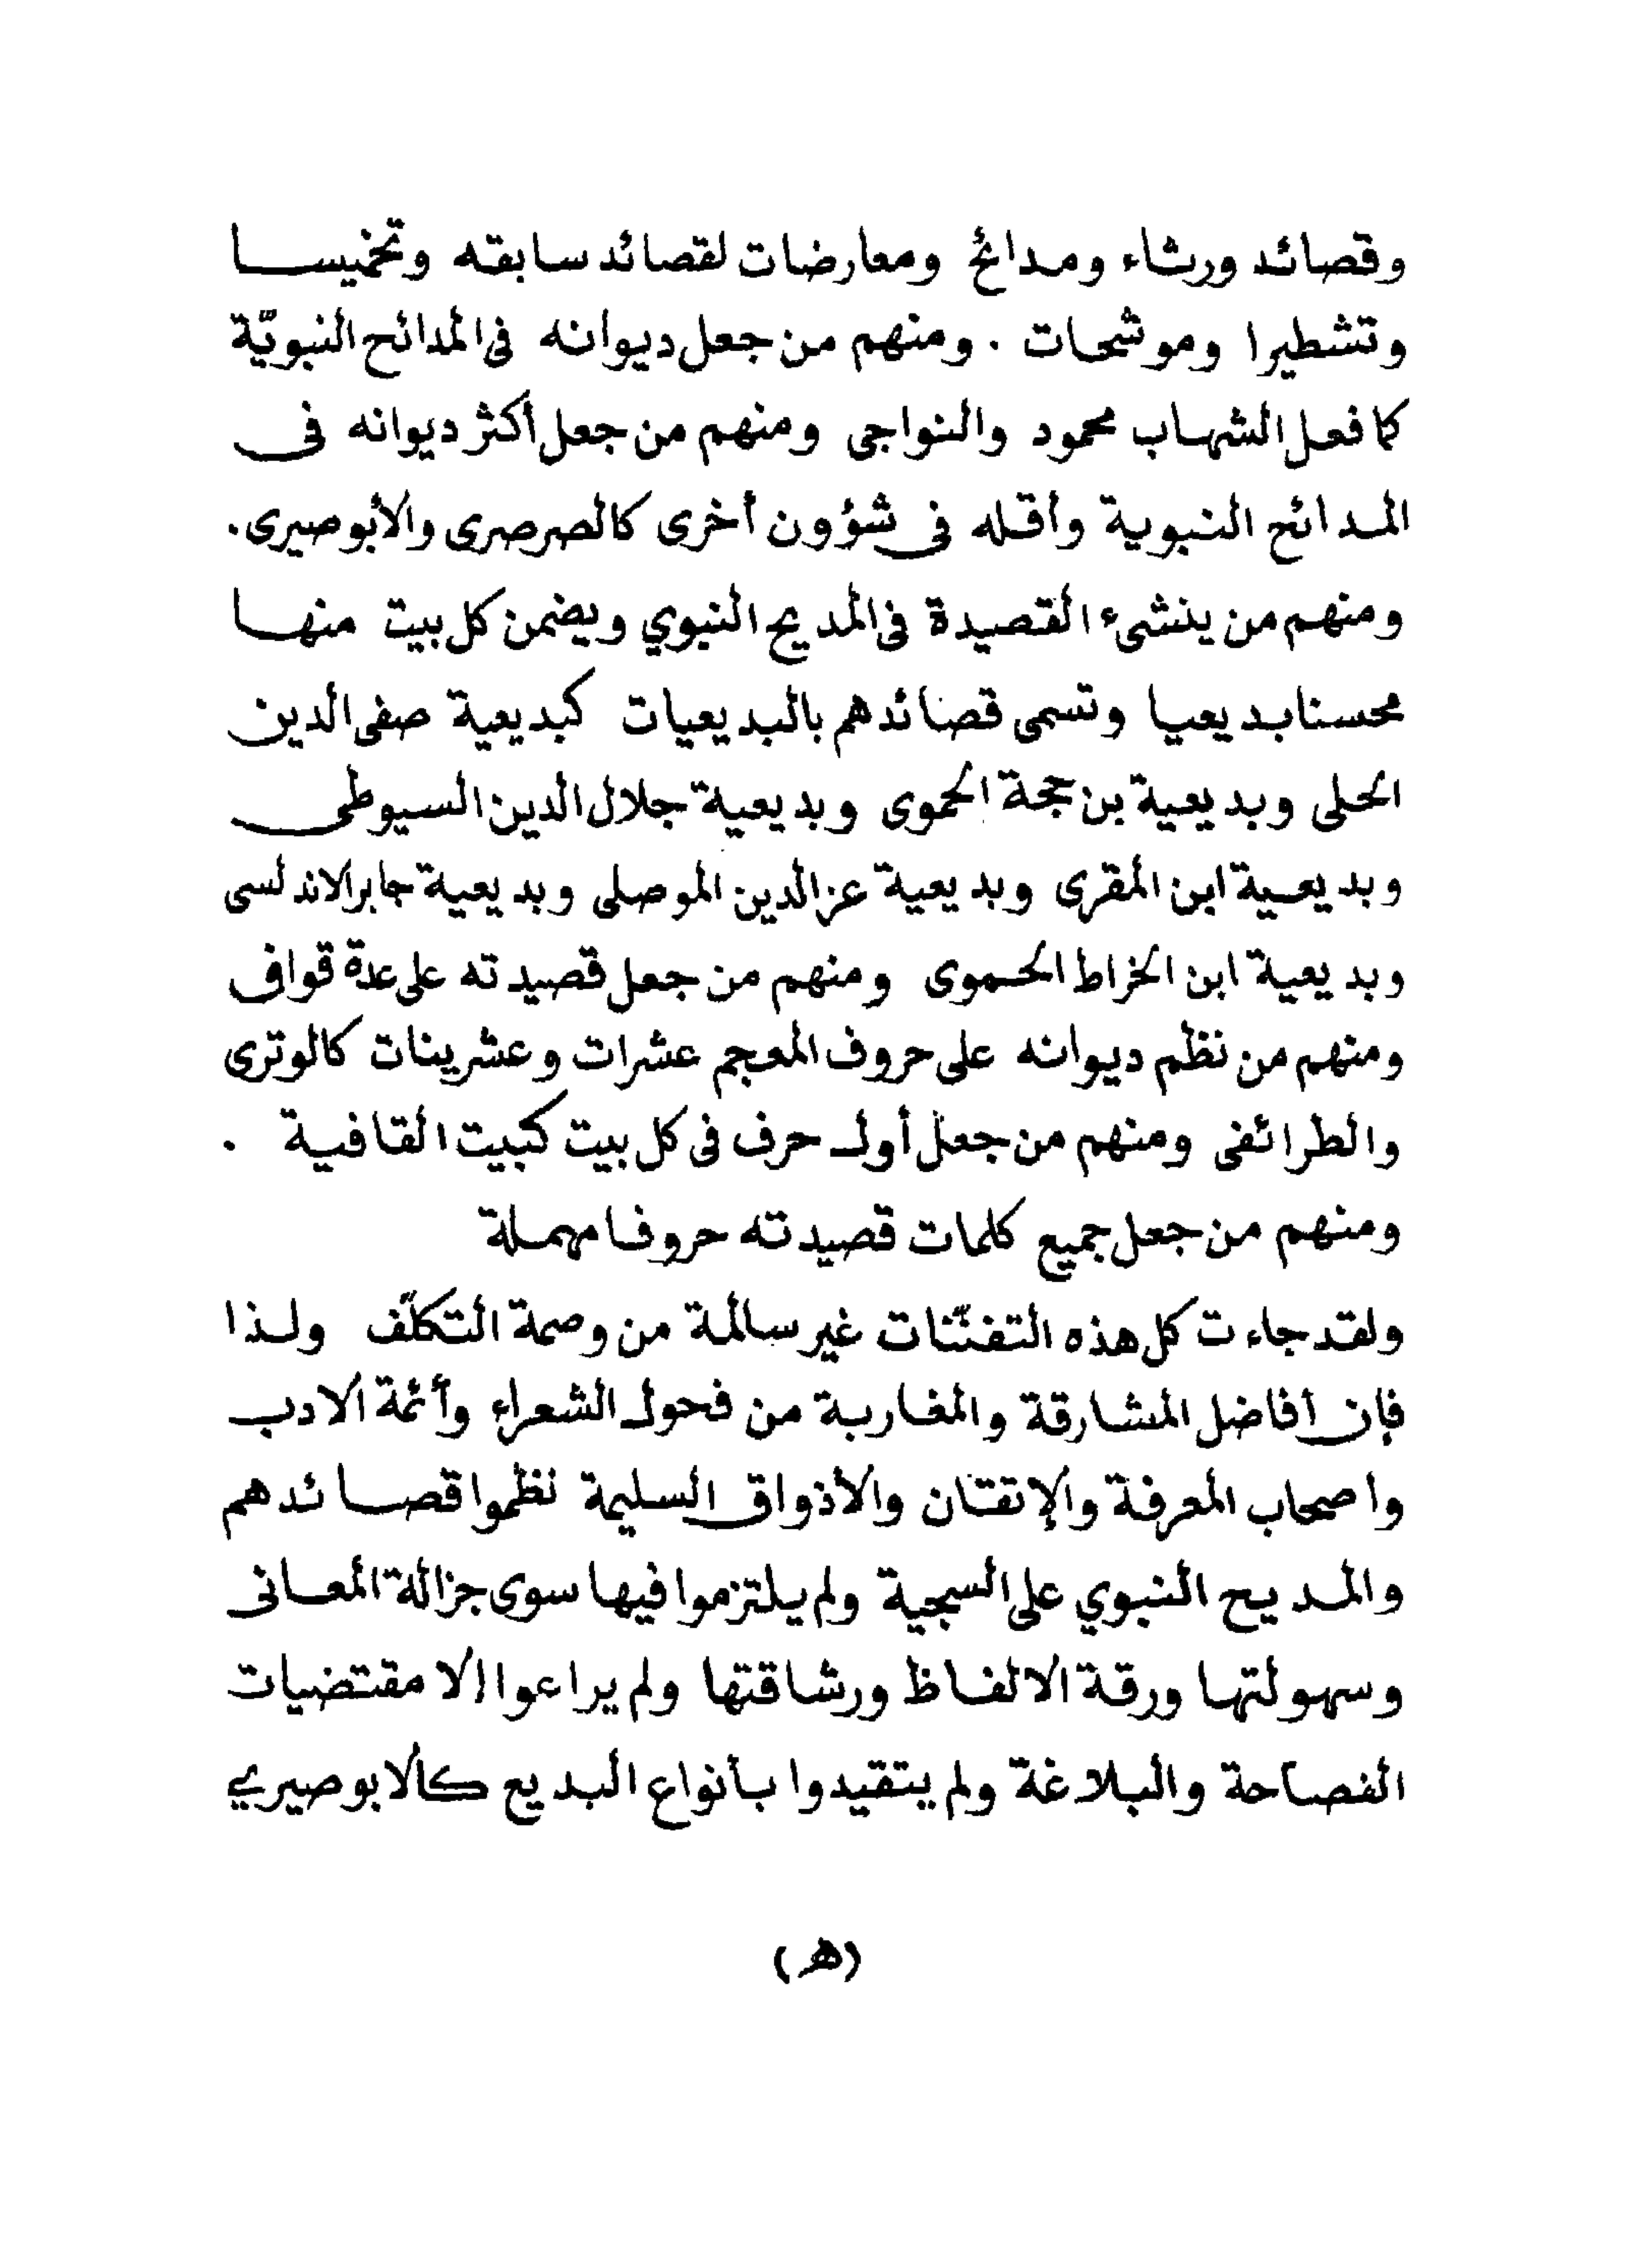 وقصائد ورثاء ومدائح ومعارضات لقصائد سابقه وتخميسا
وتشطيرا وموشحات . ومنهم من جعل ديوانه فى المدائح النبويّة
كما فعل الشهاب محمود والنواجى ومنهم من جعل أكثر ديوانه فى
المدائح النبوية وأقله فى شؤون أخرى كالصرصرى والأبوصيرى.
ومنهم من ينشىء القصيدة فى المديح النبوي ويضمن كل بيت منها
محسنا بديعيا وتسمى قصائدهم بالبديعيات كبديعية صفى الدين
الحلى وبديعية بن حجة الحموى وبديعية جلال الدين السيوطى
وبديعية ابن المقرى وبديعية عز الدين الموصلى وبديعية جابر الاندلسى
وبديعية ابن الخراط الحموى ومنهم من جعل قصيدته على عدة قواف
ومنهم من نظم ديوانه على حروف المعجم عشرات وعشرينات كالوترى
والطرائفى ومنهم من جعل أول حرف فى كل بيت كبيت القافية .
ومنهم من جعل جميع كلمات قصيدته حروفا مهملة
ولقد جاءت كل هذه التفنّنات غير سالمة من وصمة التكلّف ولذا
فإن أفاضل المشارقة والمغاربة من فحول الشعراء وأئمة الادب
واصحاب المعرفة والإتقان والأذواق السليمة نظموا قصائدهم
والمديح النبوي على السجية ولم يلتزموا فيها سوى جزالة المعانى
وسهولتها ورقة الالفاظ ورشاقتها ولم يراعوا إلا مقتضيات
الفصاحة والبلاغة ولم يتقيدوا بأنواع البديع كالابوصيري
(هـ)